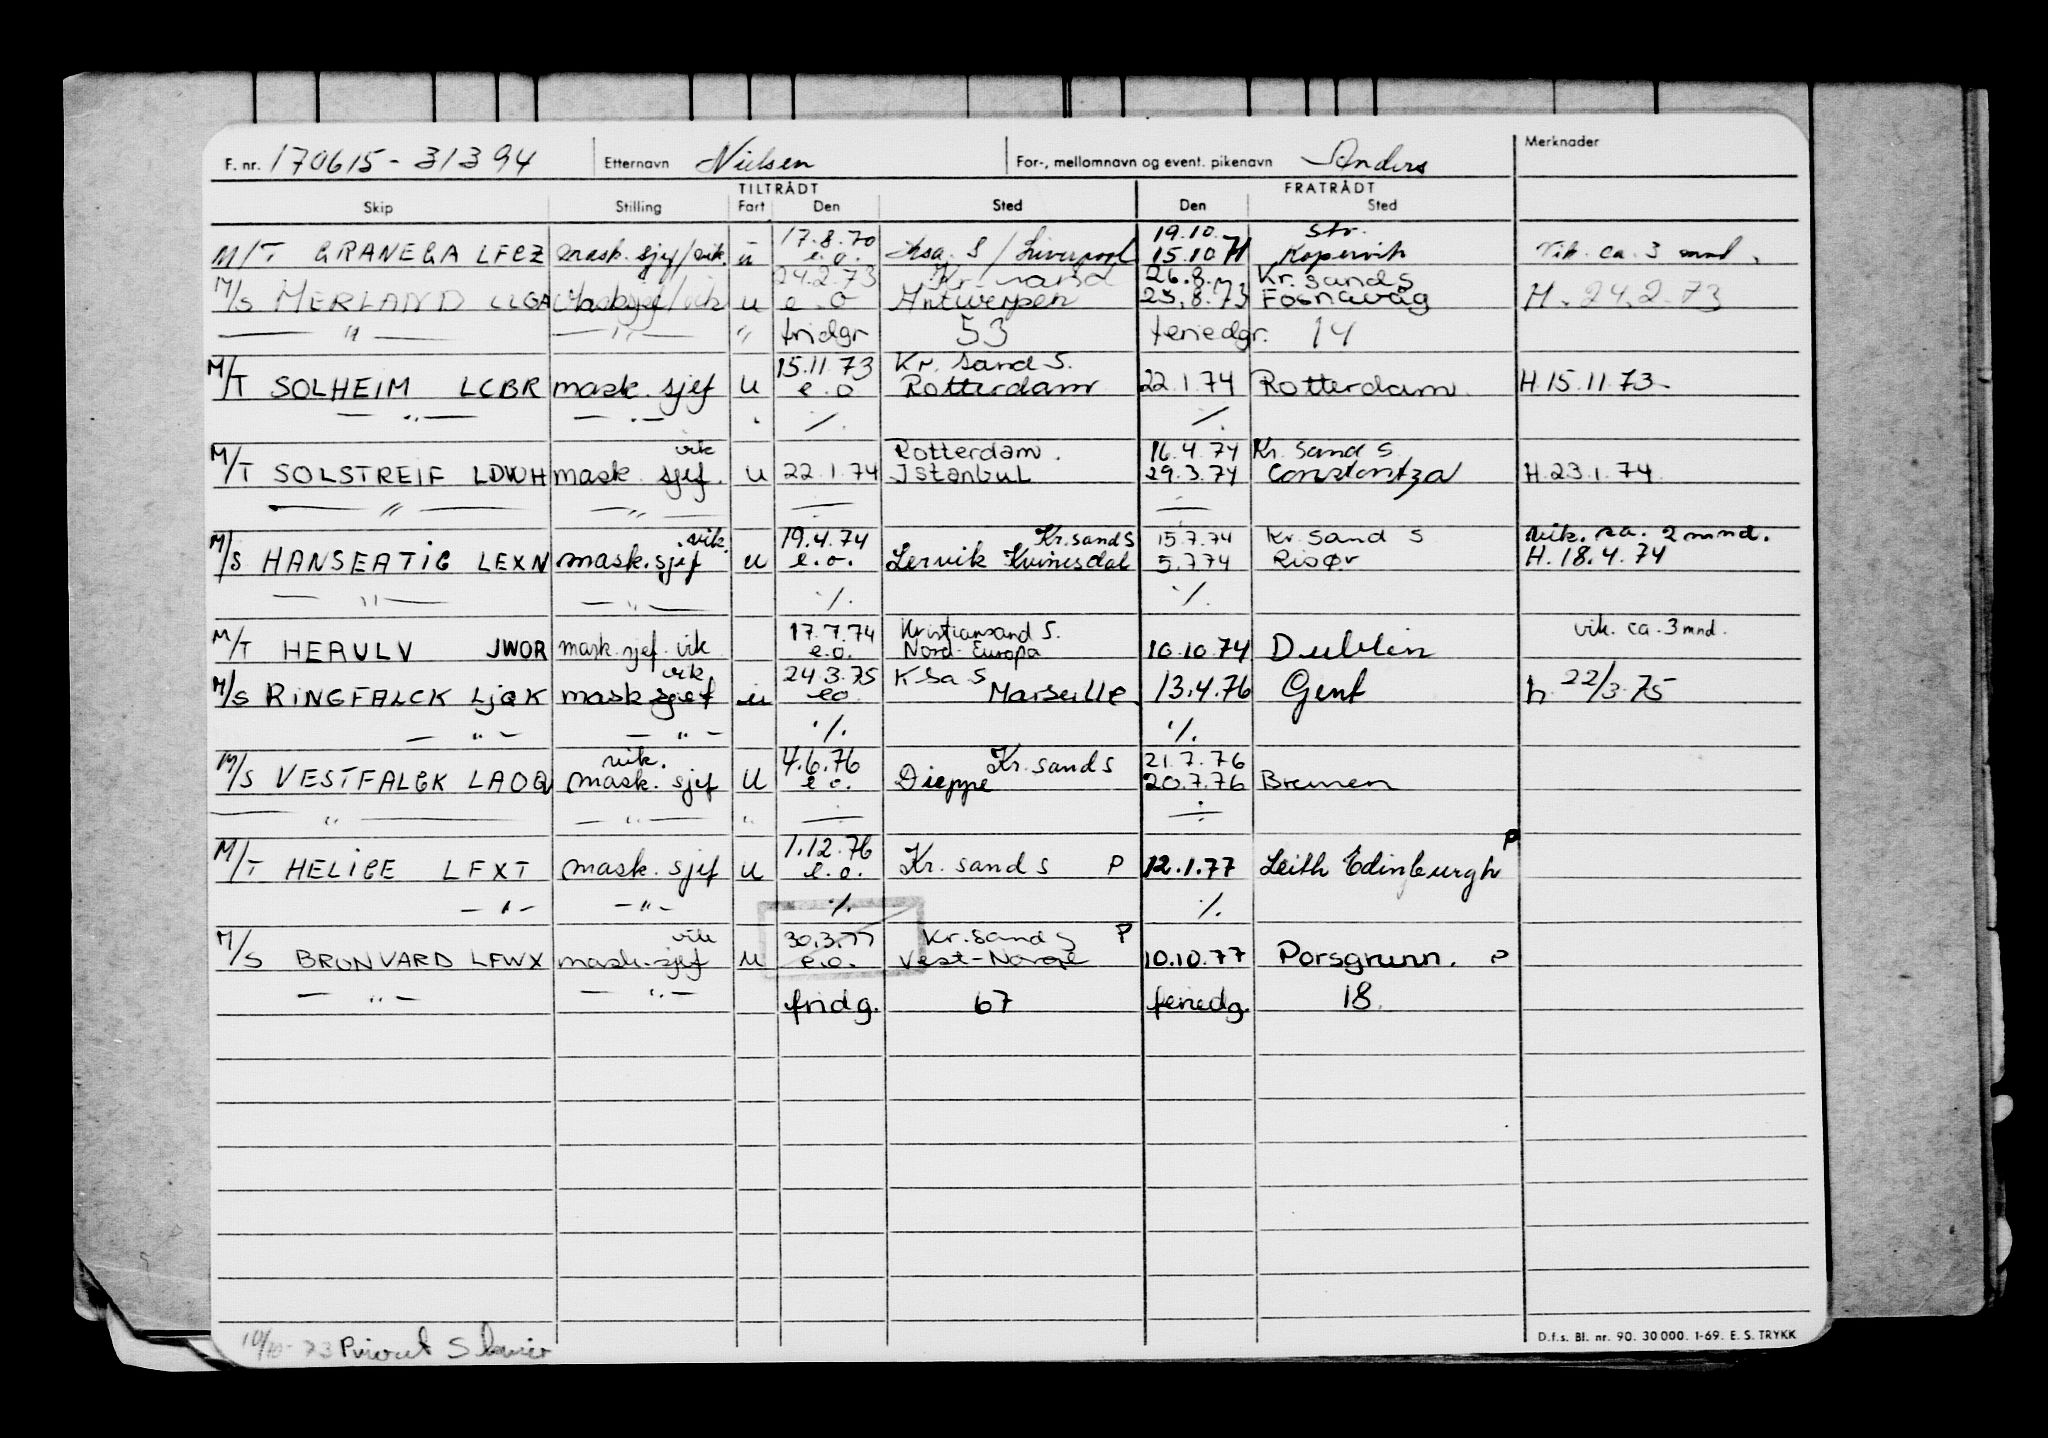 F. nr. 170615-31394 Etternavn Nielsen For-, mellomnavn og event. pikenavn Anders Merknader
TILTRÅDT FRATRÅDT
Skip Stilling Fart Den Sted Den Sted
17.8.70 19.10. Str.
M/T GRANEGA LFCZ mask. sjef/vik. u e.o. Ksa. S / Liverpool 15.10 71 Kopervik Vik. ca. 3 mnd.
24.2.73 Kr. sand 26.8. Kr. sand S
M/S MERLAND LLGA Masksjef/vik u e.o Antwerpen 25.8.73 Fosnavåg H. 24.2.73
— " — — " — " fridgr 53 feriedgr. 14
15.11.73 Kr. sand S.
M/T SOLHEIM LCBR mask. sjef u e.o Rotterdam 22.1.74 Rotterdam. H.15.11.73.
— " — — " — " ٪ ٪
vik Rotterdam. 16.4.74 Kr. Sand S
M/T SOLSTREIF LDWH mask sjef. u 22.1.74 Istanbul 29.3.74 Constantza H.23.1.74
— " — — " — ÷ ÷
vik. 19.4.74 Kr.sand S 15.7.74 Kr. Sand S vik. ca. 2 mnd.
M/S HANSEATIC LEXN mask.sjef u e.o. Lervik Kvinesdal 5.7.74 Risør H.18.4.74
— " — — " — ٪ ٪
17.7.74 Kristiansand S. vik. ca. 3 mnd.
M/T HERULV JWOR mask.sjef. vik e.o. Nord-Europa 10.10.74 Dublin
vik 24.3.75 K Sa S
M/S RINGFALCK LJQK mask sjef u eo Marseille 13.4.76 Gent h. 22/3.75
— " — — " — ٪ ٪
vik. 4.6.76 Kr. sand S 21.7.76
M/S VESTFALCK LAOQ mask. sjef u e o. Dieppe 20.7.76 Bremen
— " — — " — " ÷ ÷
1.12.76 P
M/T HELICE LFXT mask. sjef u e.o. Kr. sand S P 12.1.77 Leith Edinburgh
— " — — " — ٪ ٪
vik 30.3.77 Kr.sand S P
M/S BRUNVARD LFWX mask.sjef u e.o. Vest-Norge 10.10.77 Porsgrunn. P
— " — — " — fridg. 67 feriedg. 18.
D.f.s. Bl. nr. 90. 30 000. 1-69. E. S. TRYKK
10/10-73